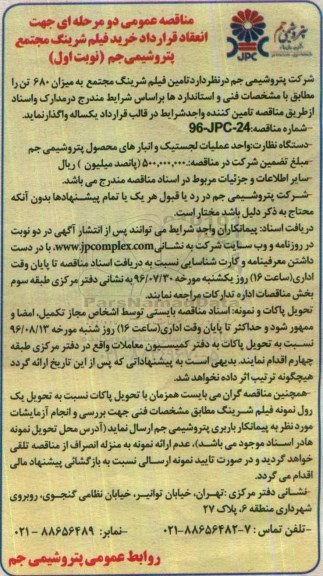 مناقصه عمومی دو مرحله ای جهت
انعقاد قرارداد خرید فیلم شرینگ مجتمع
پتروشیمی جم (نوبت اول)
پتروشیمی جم
JPC
شرکت پتروشیمی جم درنظردارد تامین فیلم شرینگ مجتمع به میزان ۶۸۰ تن را
مطابق با مشخصات فنی و استاندارد ها براساس شرایط مندرج درمدارک واسناد
ازطریق مناقصه تامین کننده واجدشرایط در قالب قرارداد یکساله واگذارنماید.
-شماره مناقصه:96-JPC-24
-دستگاه نظارت:واحد عملیات لجستیک و انبار های محصول پتروشیمی جم
-مبلغ تضمین شرکت در مناقصه:۵۰۰,۰۰۰,۰۰۰ (پانصد میلیون ) ریال
-سایر اطلاعات و جزئیات مربوط در اسناد مناقصه مندرج می باشد.
-شرکت پتروشیمی جم در رد یا قبول هر یک یا تمام پیشنهادها بدون آنکه
محتاج به ذکر دلیل باشد مختار است.
دریافت اسناد: پیمانکاران واجد شرایط می توانند پس از انتشار آگهی در دو نوبت
در روزنامه و وب سایت شرکت به نشانی www.jpcomplex.com، با در دست
داشتن معرفینامه و کارت شناسایی نسبت به دریافت اسناد مناقصه تا پایان وقت
اداری(ساعت ۱۶) روز یکشنبه مورخه ۹۶/۰۷/۳۰ به نشانی دفتر مرکزی طبقه سوم
بخش مناقصات اداره تدارکات مراجعه نمایند.
تحویل پاکات و نمونه: اسناد مناقصه بایستی توسط اشخاص مجاز تکمیل، امضا و
ممهور شود و حداکثر تا پایان وقت اداری(ساعت ۱۶) روز شنبه مورخه ۹۶/۰۸/۱۳
نسبت به تحویل پاکات به دفتر کمیسیون معاملات واقع در دفتر مرکزی طبقه
چهارم اقدام نمایند. بدیهی است به پیشنهاداتی که پس از این تاریخ ارائه گردد
هیچگونه ترتیب اثر داده نخواهد شد.
-همچنین مناقصه گران می بایست همزمان با تحویل پاکات نسبت به تحویل یک
رول نمونه فیلم شرینگ مطابق مشخصات فنی جهت بررسی و انجام آزمایشات
مورد نظر به پیمانکار باربری پتروشیمی جم ارسال نماید (آدرس محل تحویل نمونه
هادر اسناد موجود می باشد)، عدم ارائه نمونه به منزله انصراف از مناقصه تلقی
خواهد گردید و در صورت تایید نمونه ارسالی نسبت به بازگشائی پیشنهاد مالی
اقدام می گردد.
-نشانی دفتر مرکزی :تهران، خیابان توانیر، خیابان نظامی گنجوی، روبروی
شهرداری منطقه ۶، پلاک ۲۷
-تلفن تماس : ۷-۸۸۶۵۶۴۸۲-۰۲۱ -نمابر: ۸۸۶۵۶۴۸۹ -۰۲۱
روابط عمومی پتروشیمی جم